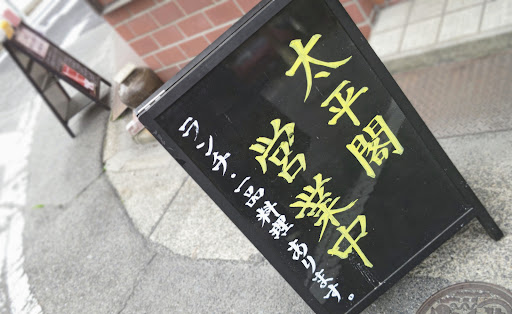 太平閣
営業中
ランチ・一品料理あります。